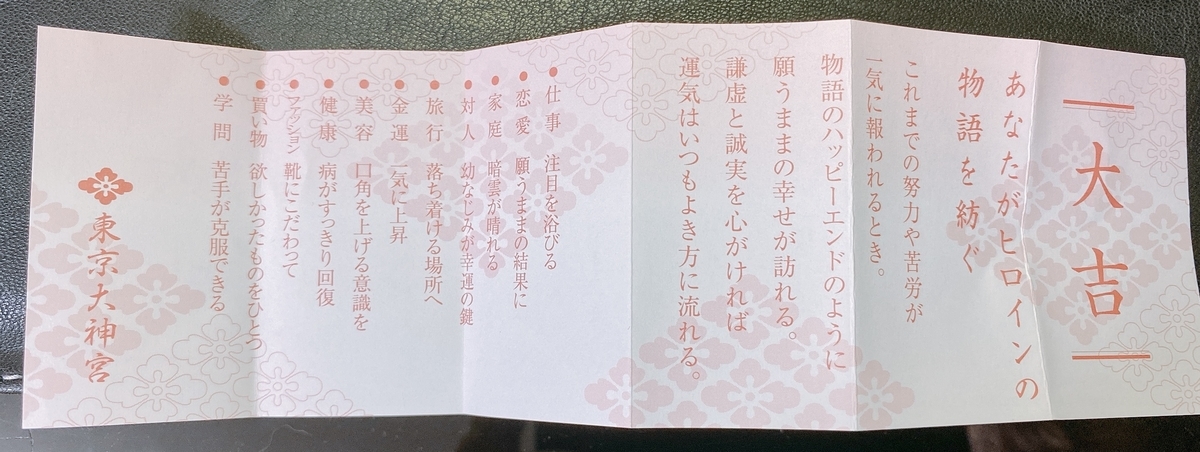 大吉
あなたがヒロインの
物語を紡ぐ
これまでの努力や苦労が
一気に報われるとき。
物語のハッピーエンドのように
願うままの幸せが訪れる。
謙虚と誠実を心がければ
運気はいつもよき方に流れる。
●仕事 注目を浴びる
●恋愛 願うままの結果に
●家庭 暗雲が晴れる
●対人 幼なじみが幸運の鍵
●旅行 落ち着ける場所へ
●金運 一気に上昇
●美容 口角を上げる意識を
●健康 病がすっきり回復
●ファッション 靴にこだわって
●買い物 欲しかったものをひとつ
●学問 苦手が克服できる
東京大神宮